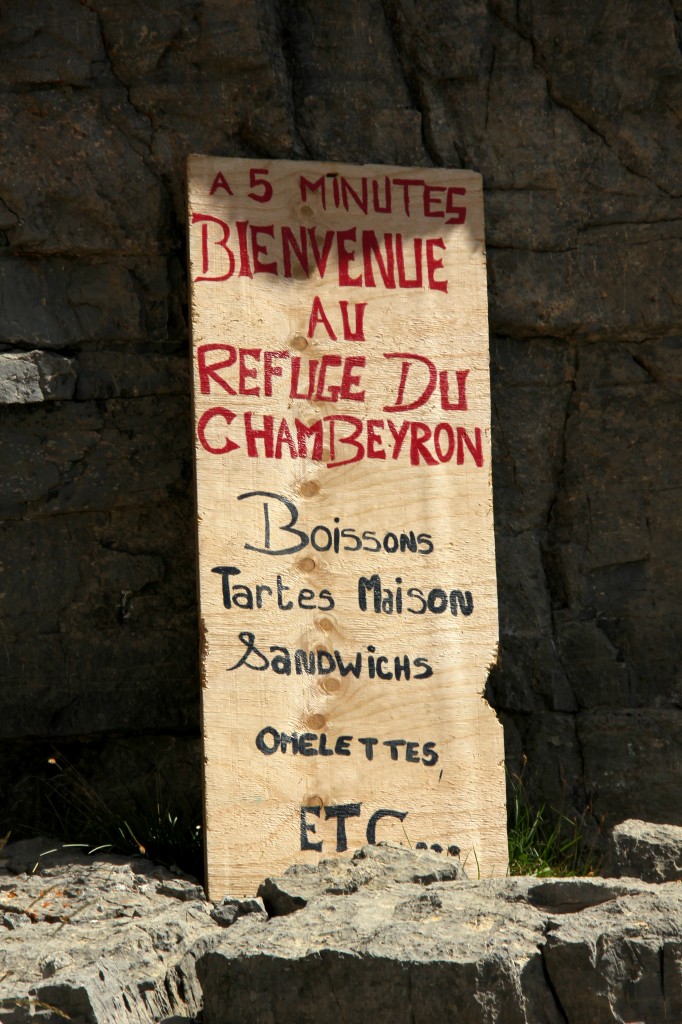 A 5 MINUTES
BIENVENUE
AU
REFUGE DU
CHAMBEYRON
Boissons
Tartes Maison
SANDWICHS
OMELETTES,
ETC....